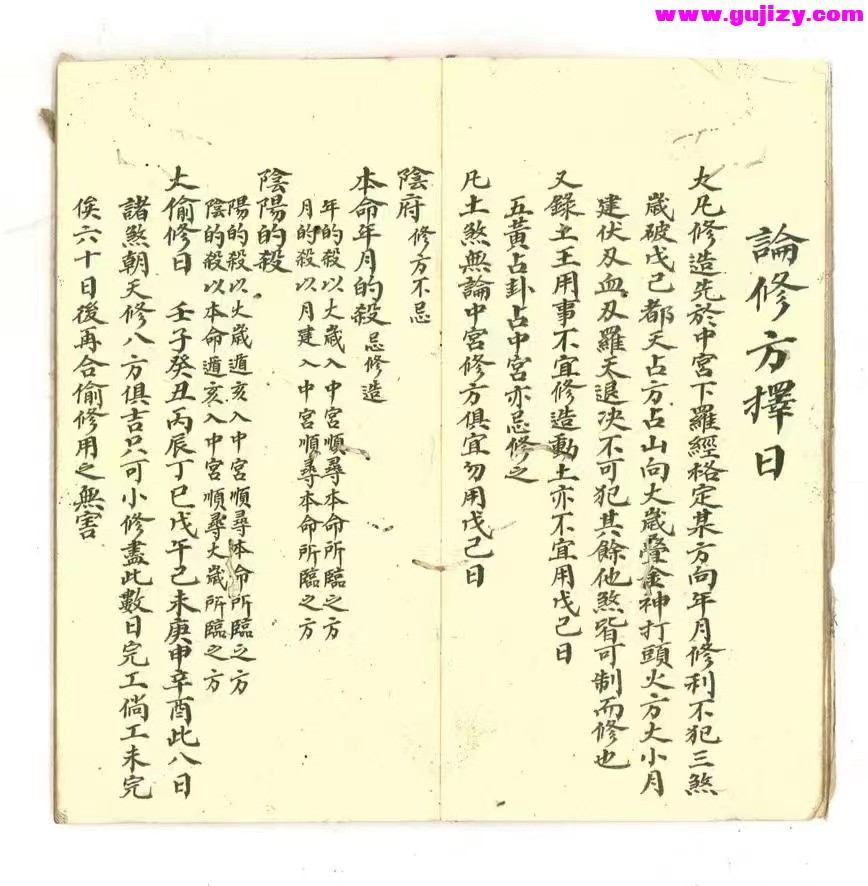 www.gujizy.com
論修方擇日
大凡修造先於中宮下羅經格定某方向年月修利不犯三煞
歲破戊己都天占方占山向大歲疊金神打頭火方大小月
建伏及血刃羅天退決不可犯其餘他煞皆可制而修也
又錄土王用事不宜修造動土亦不宜用戊己日
五黃占卦占中宮亦忌修之
凡土煞無論中宮修方俱宜勿用戊己日
陰府修方不忌
本命年月的殺忌修造
年的殺以大歲入中宮順尋本命所臨之方
月的殺以月建入中宮順尋本命所臨之方
陰陽的殺
陽的殺以大歲遁亥入中宮順尋本命所臨之方
陰的殺以本命遁亥入中宮順尋大歲所臨之方
大偷修日 壬子癸丑丙辰丁巳戊午己未庚申辛酉此八日
諸煞朝天修八方俱吉只可小修盡此數日完工倘工未完
俟六十日後再合偷修用之無害